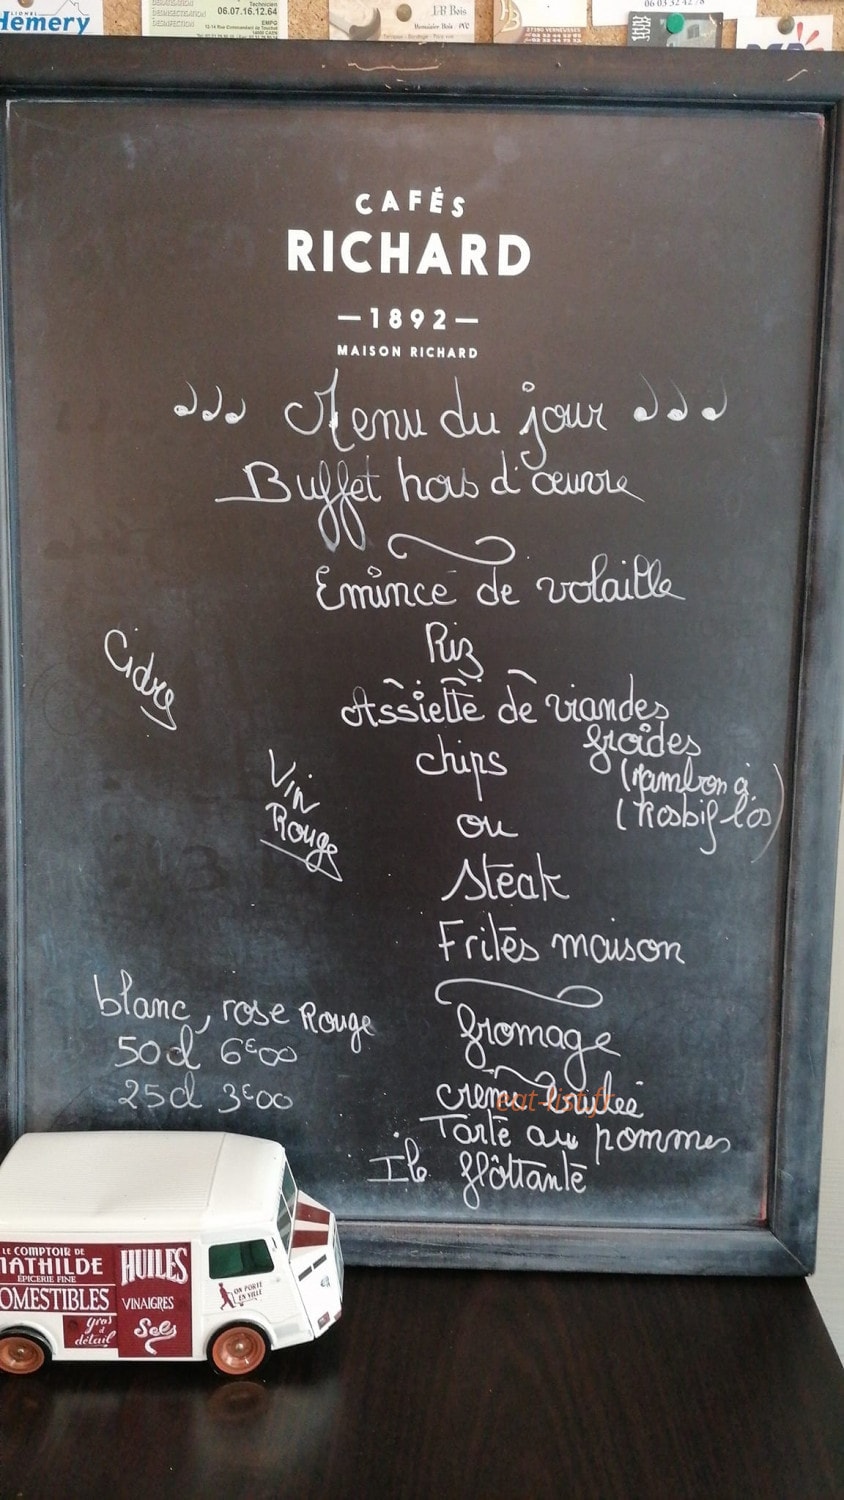 Hemery
Technicien
06.07.16.12.64
EMPG
CAFÉS
RICHARD
1892
MAISON RICHARD
Menu du jour
Buffet hors d'œuvre
Emincé de volaille
Riz
Cidre
Assiette de viandes
froides
chips
(jambon à
(Rosbif l'os)
Vin
Rouge
ou
Steak
Frites maison
blanc, rose Rouge
50cl 6€00
25cl 3€00
fromage
creme brulée
eat-list.fr
Tarte au pommes
Ile flôttante
LE COMPTOIR DE
MATHILDE
ÉPICERIE FINE
OMESTIBLES
gros
détail
HUILES
VINAIGRES
Sels
ON PORTE
EN VILLE